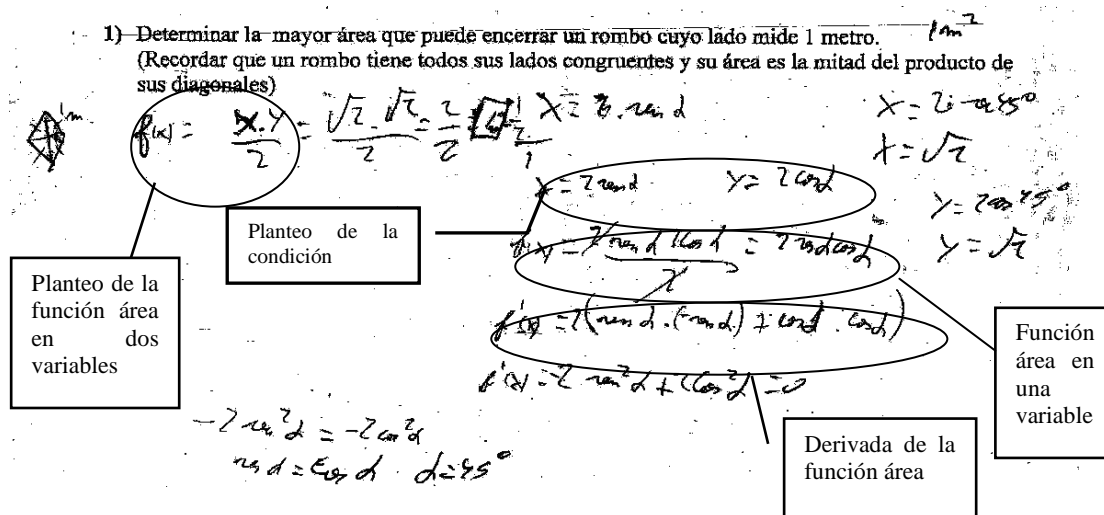 1) Determinar la mayor área que puede encerrar un rombo cuyo lado mide 1 metro. 1m²
(Recordar que un rombo tiene todos sus lados congruentes y su área es la mitad del producto de
sus diagonales)
1m
f(x) = x.y/2 = √2.√2/2 = 2/2
x = 2 sen α y = 2 cos α
x = √2
y = 2 cos 45°
y = √2
= 2 sen α cos α
f'(x) = 2(sen α.(-sen α) + cos α.cos α)
f'(x) = -2 sen² α + 2 cos² α = 0
-2 sen² α = -2 cos² α
sen α = cos α α = 45°
Planteo de la
condición
Planteo de la
función área
en dos
variables
Función
área en
una
variable
Derivada de la
función área